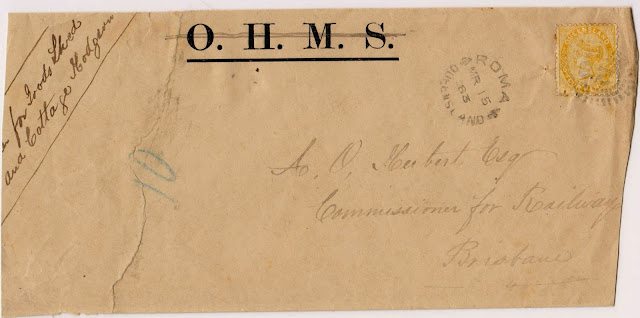 for Goods Shed
and Cottage Hodgson
O. H. M. S.
ROMA
MR 15
83
QUEENSLAND
10
A. O. Herbert Esq
Commissioner for Railway
Brisbane